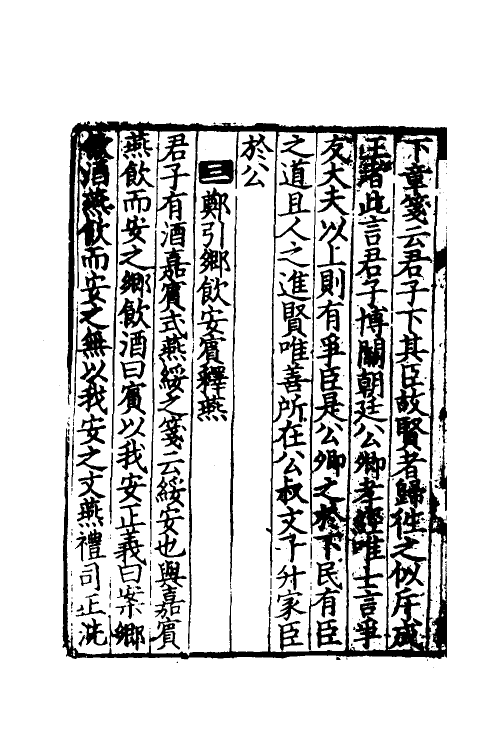 下章箋云君子下其臣故賢者歸往之似斥成
王者此言君子博關朝廷公卿孝經唯士言爭
友大夫以上則有爭臣是公卿之於下民有臣
之道且人之進賢唯善所在公叔文子升家臣
於公
三鄭引鄉飲安賓釋燕
君子有酒嘉賓式燕綏之箋云綏安也與嘉賓
燕飲而安之鄉飲酒曰賓以我安正義曰案鄉
飲酒燕飲而安之無以我安之文燕禮司正洗